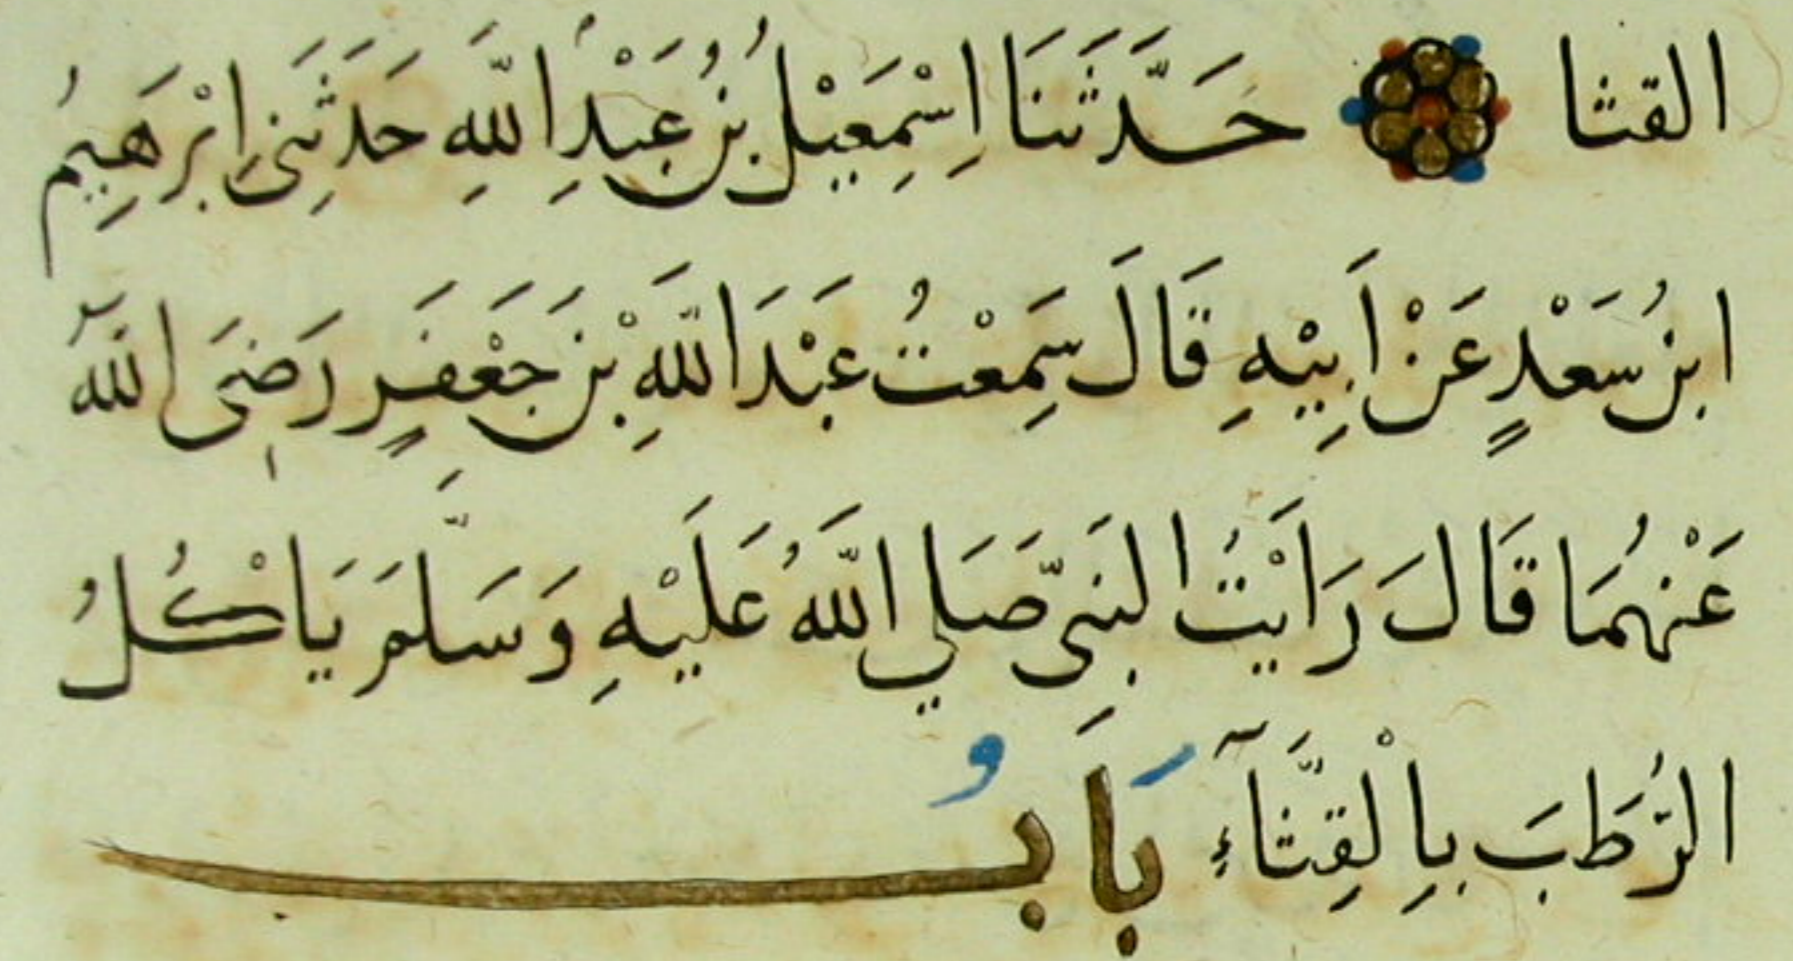 القثا حَدَّثَنَا اِسْمَعِيْلُ بْنُ عَبْدِ اللّهِ حَدَثَنِي اِبْرَهِيمُ
ابنُ سَعْدٍ عَنْ اَبِيْهِ قَالَ سَمِعْتُ عَبْدَ اللّهِ بْنَ جَعْفَرٍ رَضِيَ اللّهُ
عَنْهُمَا قَالَ رَاَيْتُ النَبِيَّ صَلَي اللّهُ عَلَيْهِ وَسَلَّمَ يَاكُلُ
الرُّطَبَ بِالْقِثَّآءِ بَابُ